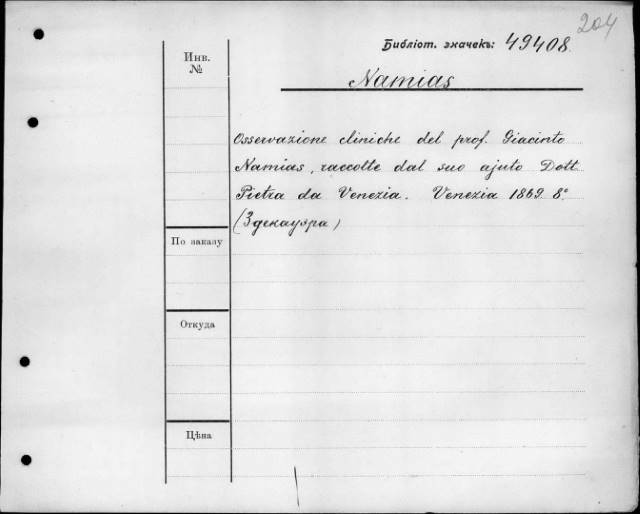 204
Библіот. значекъ: 49408.
Инв.
№
Namias
Osservazione cliniche del prof. Giacinto
Namias, raccolte dal suo ajuto Dott.
Pietra da Venezia. Venezia 1869. 8°
(Здекауэра)
По заказу
Откуда
Цѣна